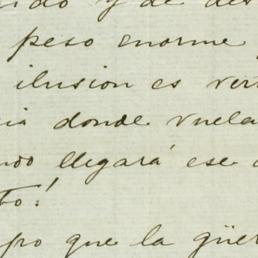 y de
peso enorme
ilusion es
donde vuela
llegará ese
to!
que la güer